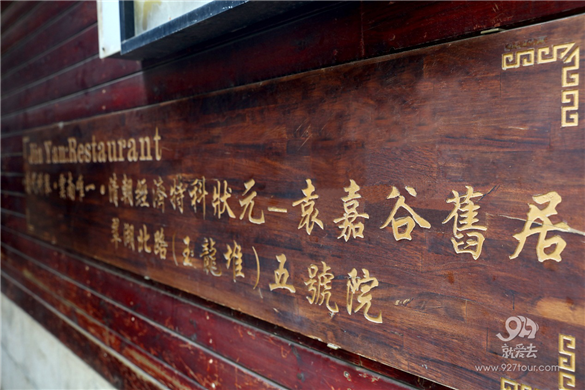 Jin Yan:Restaurant
雲南唯一·清朝經濟特科狀元–袁嘉谷舊居
翠湖北路(玉龍堆)五號院
927
就爱去
www.927tour.com